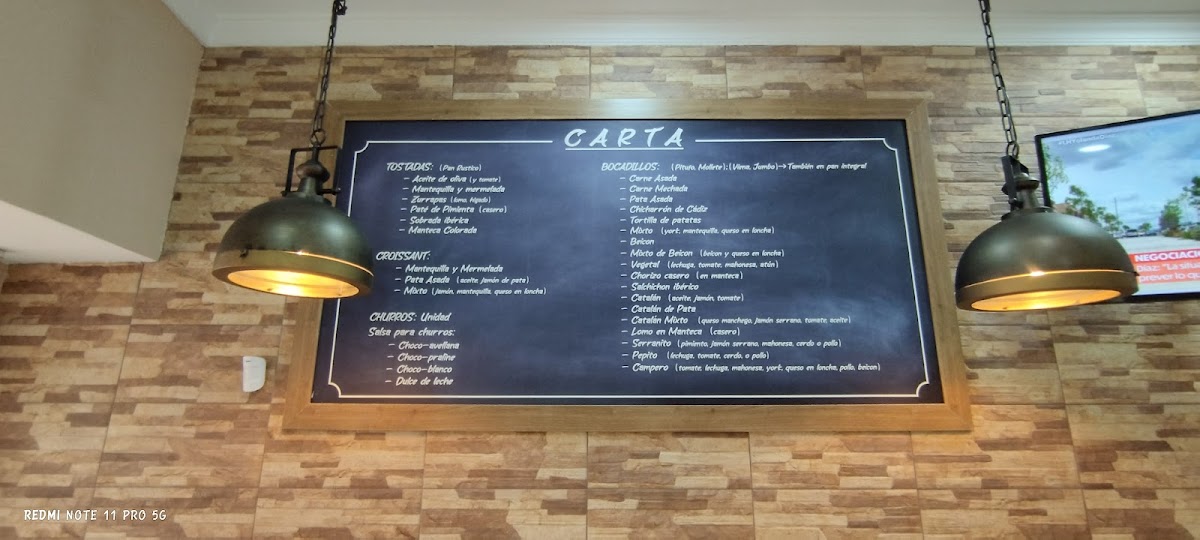 CARTA
TOSTADAS: (Pan Rustico)
- Aceite de oliva (y tomate)
- Mantequilla y mermelada
- Zurrapas (lomo, hígado)
- Paté de Pimienta (casero)
- Sobrada ibérica
- Manteca Colorada
CROISSANT:
- Mantequilla y Mermelada
- Pata Asada (aceite, jamón de pata)
- Mixto (jamón, mantequilla, queso en loncha)
CHURROS: Unidad
Salsa para churros:
- Choco-avellana
- Choco-praline
- Choco-blanco
- Dulce de leche
BOCADILLOS: (Pitufo, Mollete); (Viena, Jumbo)→También en pan integral
- Carne Asada
- Carne Mechada
- Pata Asada
- Chicharrón de Cádiz
- Tortilla de patatas
- Mixto (york, mantequilla, queso en loncha)
- Beicon
- Mixto de Beicon (beicon y queso en loncha)
- Vegetal (lechuga, tomate, mahonesa, atún)
- Chorizo casero (en manteca)
- Salchichón ibérico
- Catalán (aceite, jamón, tomate)
- Catalán de Pata
- Catalán Mixto (queso manchego, jamón serrano, tomate, aceite)
- Lomo en Manteca (casero)
- Serranito (pimiento, jamón serrano, mahonesa, cerdo o pollo)
- Pepito (lechuga, tomate, cerdo o pollo)
- Campero (tomate, lechuga, mahonesa, york, queso en loncha, pollo, beicon)
NEGOCIACI
Díaz: "La situa
prever lo qu
REDMI NOTE 11 PRO 5G